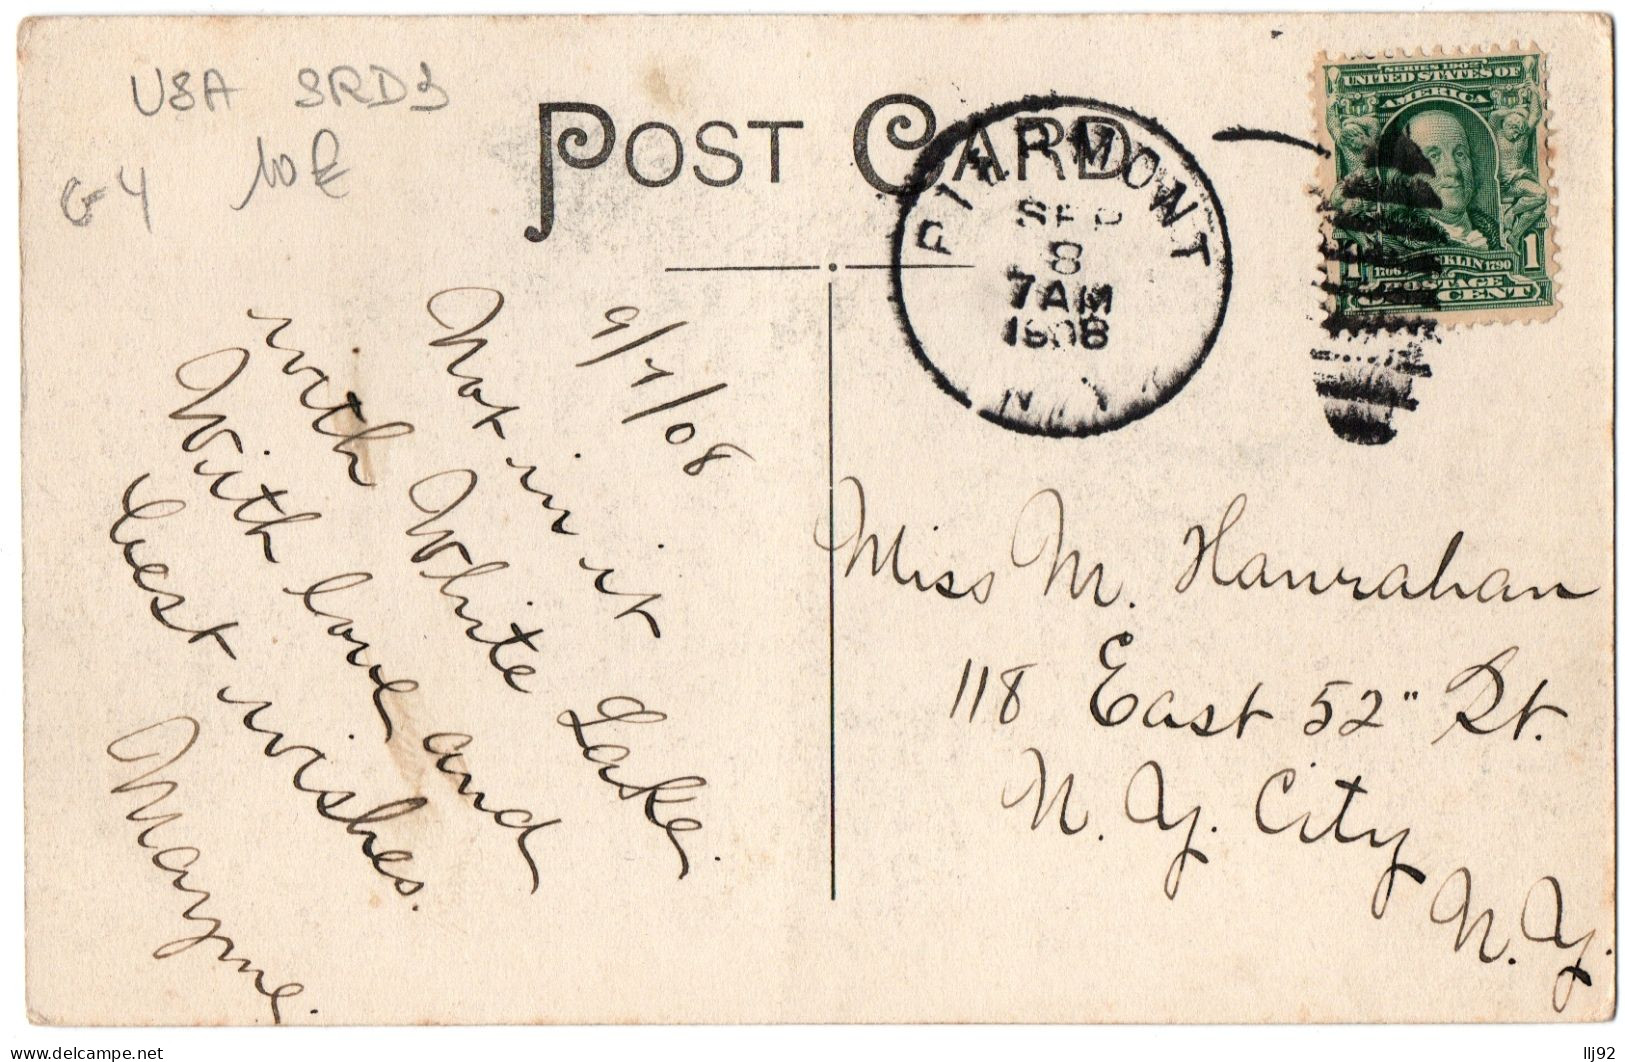 USA
10 €
G-4
POST CARD
PIERMONT
SEP
8
7 AM
1908
N.Y.
SERIES 1902
UNITED STATES OF
AMERICA
1 1
1706 FRANKLIN 1790
POSTAGE
CENT
9/7/08
Not in it
with White Lake.
With love and
best wishes.
Mayme.
Miss M. Hanrahan
118 East 52" St.
N. Y. City
N. Y.
llj92